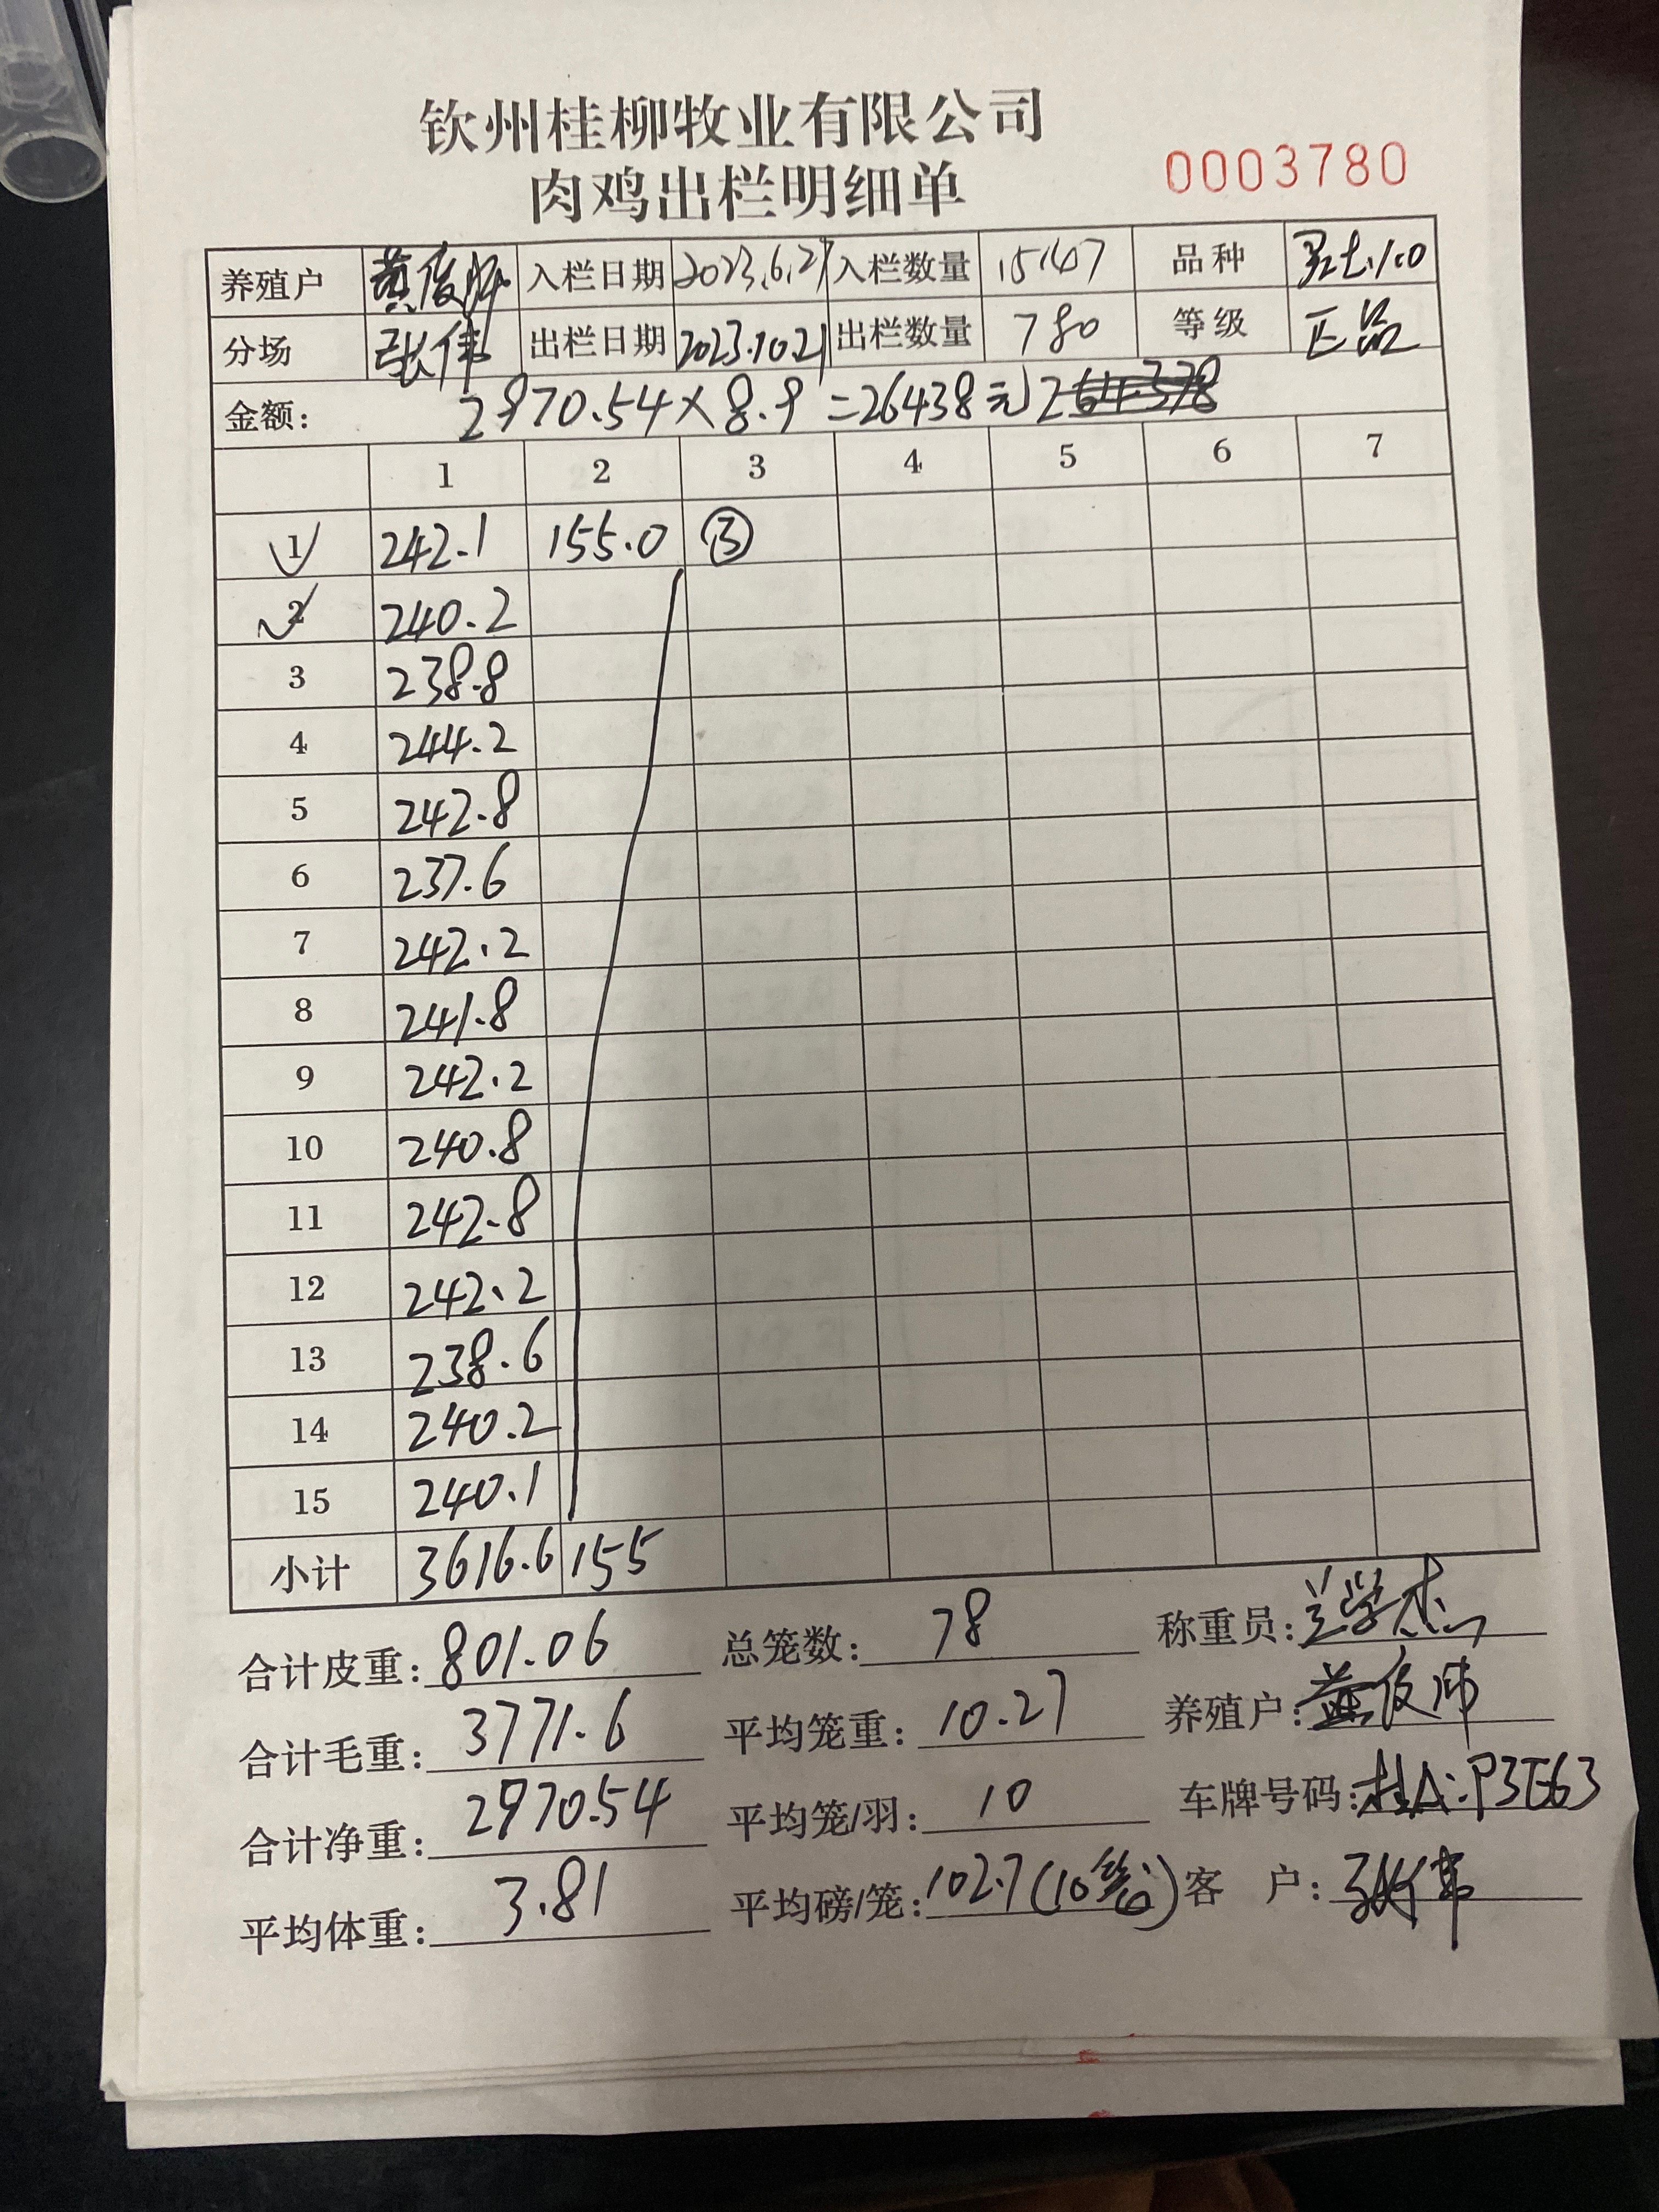 钦州桂柳牧业有限公司
肉鸡出栏明细单
0003780
养殖户 黄俊 入栏日期 2023.6.27 入栏数量 15147 品种
分场 张伟 出栏日期 2023.10.21 出栏数量 780 等级 正品
金额: 2970.54×8.9=26438元
1 2 3 4 5 6 7
1 242.1 155.0 ③
2 240.2
3 238.8
4 244.2
5 242.8
6 237.6
7 242.2
8 241.8
9 242.2
10 240.8
11 242.8
12 242.2
13 238.6
14 240.2
15 240.1
小计 3616.6 155
合计皮重: 801.06 总笼数: 78 称重员: 兰学杰
合计毛重: 3771.6 平均笼重: 10.27 养殖户: 黄俊
合计净重: 2970.54 平均笼/羽: 10 车牌号码: 桂A:P3E63
平均体重: 3.81 平均磅/笼: 102.7(10笼) 客 户: 张伟